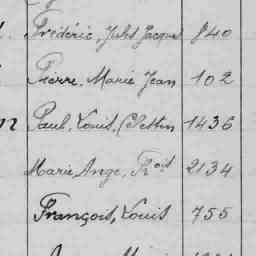 Frédéric, Jules Jacques 840
Pierre, Marie Jean 102
Paul, Louis, Célestin 1436
Marie Ange, Frois 2134
François, Louis 755